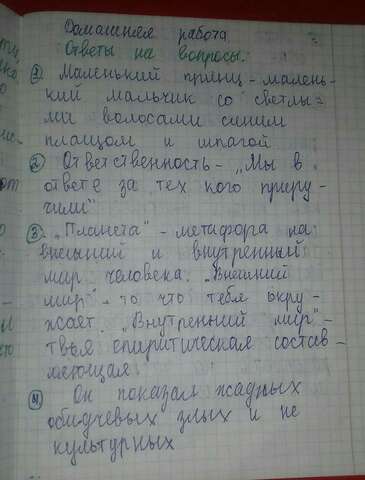 Домашняя работа
Ответы на вопросы.
1 Маленький принц - малень-
кий мальчик со светлы=
ми волосами синим
плащом и шпагой
2 Ответственность - „Мы в
ответе за тех кого приру-
чили"
3 „Планета" - метафора на
внешний и внутренный
мир человека. „Внешний
мир" - то что тебя окру-
жает. „Внутренний мир" -
твоя спиритическая состав-
ляющая.
4 Он показал жадных
обидчевых злых и не
культурных